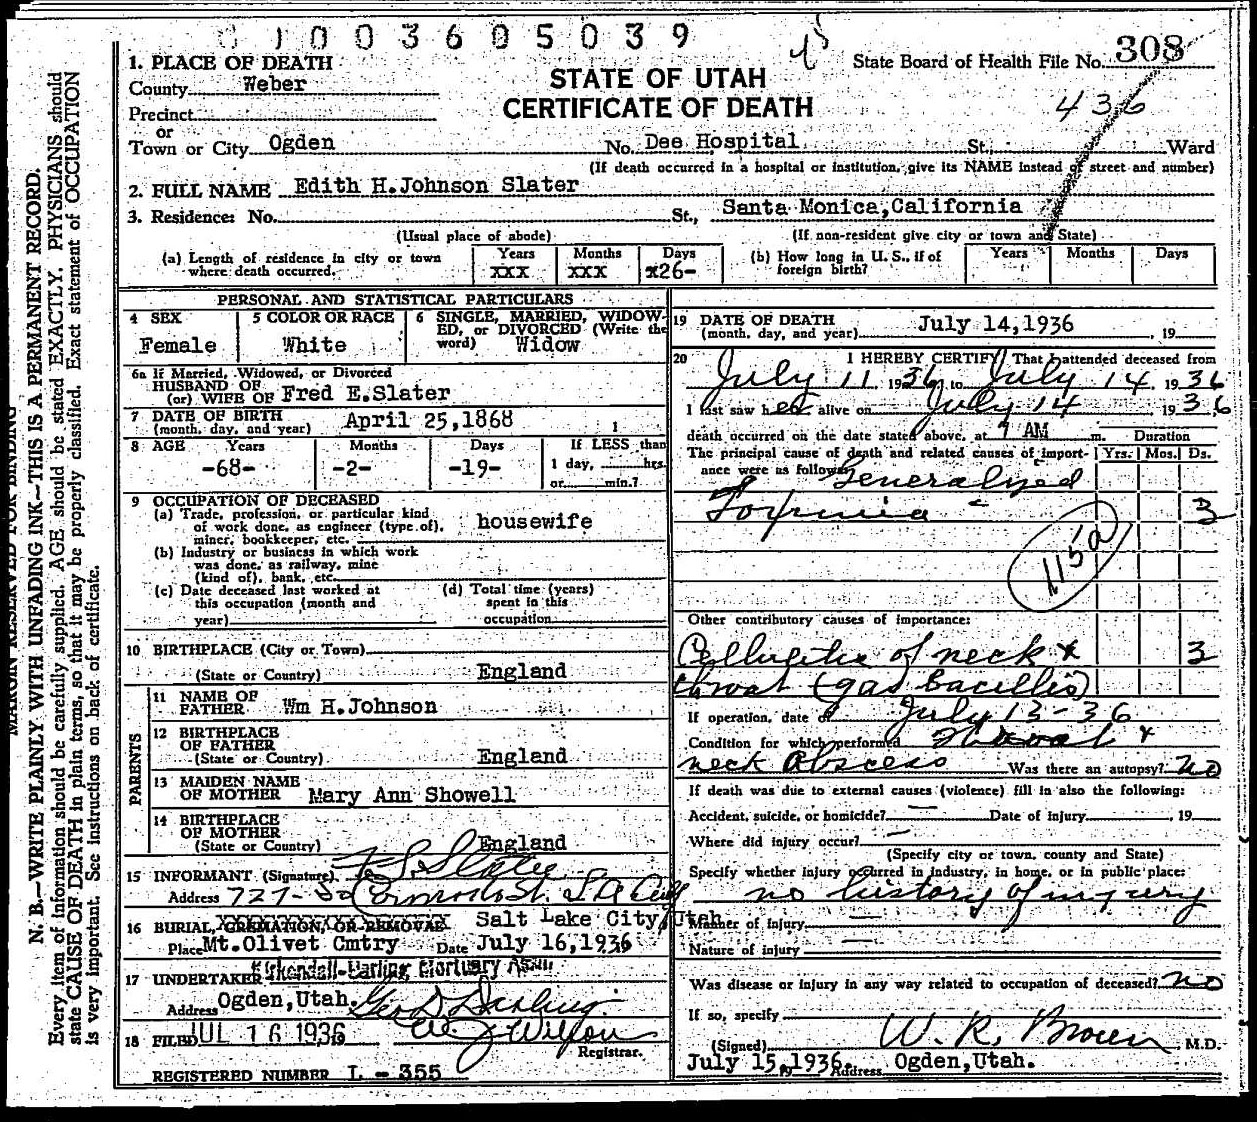 0 1 0 0 3 6 0 5 0 3 9
State Board of Health File No. 308
436
STATE OF UTAH
CERTIFICATE OF DEATH
1. PLACE OF DEATH
County Weber
Precinct
or
Town or City Ogden No. Dee Hospital St., Ward
(If death occurred in a hospital or institution, give its NAME instead of street and number)
2. FULL NAME Edith H.Johnson Slater
3. Residence: No. St., Santa Monica,California
(Usual place of abode) (If non-resident give city or town and State)
(a) Length of residence in city or town where death occurred. Years xxx Months xxx Days x26-
(b) How long in U. S., if of foreign birth? Years Months Days
PERSONAL AND STATISTICAL PARTICULARS
4 SEX Female
5 COLOR OR RACE White
6 SINGLE, MARRIED, WIDOWED, or DIVORCED (Write the word) Widow
6a If Married, Widowed, or Divorced
HUSBAND OF
(or) WIFE OF Fred E.Slater
7 DATE OF BIRTH
(month, day, and year) April 25,1868
8 AGE Years -68- Months -2- Days -19- If LESS than 1 day, hrs. or min.?
9 OCCUPATION OF DECEASED
(a) Trade, profession, or particular kind of work done, as engineer (type of), miner, bookkeeper, etc. housewife
(b) Industry or business in which work was done, as railway, mine (kind of), bank, etc.
(c) Date deceased last worked at this occupation (month and year)
(d) Total time (years) spent in this occupation
10 BIRTHPLACE (City or Town)
(State or Country) England
PARENTS
11 NAME OF FATHER Wm H.Johnson
12 BIRTHPLACE OF FATHER
(State or Country) England
13 MAIDEN NAME OF MOTHER Mary Ann Showell
14 BIRTHPLACE OF MOTHER
(State or Country) England
15 INFORMANT (Signature) Slater
Address 727- So St. L A Calif
16 BURIAL, CREMATION, OR REMOVAL Salt Lake City,Utah
Place Mt.Olivet Cmtry Date July 16,1936
17 UNDERTAKER Kirkendall-Darling Mortuary Assn
Address Ogden,Utah. Geo D Darling
18 FILED JUL 16 1936 Wilson
Registrar.
REGISTERED NUMBER L - 355
19 DATE OF DEATH
(month, day, and year) July 14,1936, 19
20 I HEREBY CERTIFY, That I attended deceased from
July 11 1936, to July 14, 1936
I last saw her alive on July 14 1936
death occurred on the date stated above, at 1 AM m. Duration
The principal cause of death and related causes of importance were as follows: Yrs. Mos. Ds.
Generalized
Toxemia 3
115a
Other contributory causes of importance:
Cellulitis of neck & 3
throat (gas bacillis)
If operation, date of July 13-36
Condition for which performed Throat &
neck Abscess Was there an autopsy? no
If death was due to external causes (violence) fill in also the following:
Accident, suicide, or homicide? — Date of injury , 19
Where did injury occur? —
(Specify city or town, county and State)
Specify whether injury occurred in industry, in home, or in public place:
no history of injury
Manner of injury —
Nature of injury —
Was disease or injury in any way related to occupation of deceased? no
If so, specify
(Signed) W. R. Brown, M.D.
July 15, 1936. Address Ogden,Utah.
MARGIN RESERVED FOR BINDING
N. B.—WRITE PLAINLY WITH UNFADING INK—THIS IS A PERMANENT RECORD.
Every item of information should be carefully supplied. AGE should be stated EXACTLY. PHYSICIANS should
state CAUSE OF DEATH in plain terms, so that it may be properly classified. Exact statement of OCCUPATION
is very important. See instructions on back of certificate.